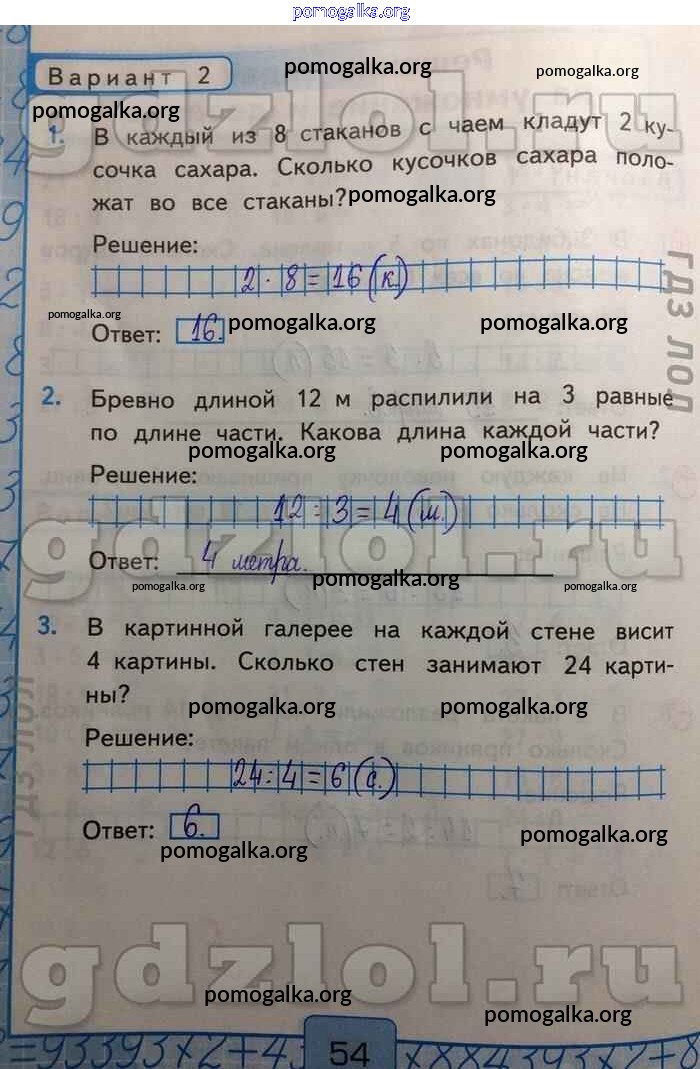 pomogalka.org
Вариант 2
pomogalka.org
pomogalka.org
pomogalka.org
gdzlol.ru
1. В каждый из 8 стаканов с чаем кладут 2 ку-
сочка сахара. Сколько кусочков сахара поло-
жат во все стаканы?
pomogalka.org
Решение:
2 · 8 = 16 (к.)
ГДЗ ЛОЛ
pomogalka.org
Ответ: 16.
pomogalka.org
pomogalka.org
2. Бревно длиной 12 м распилили на 3 равные
по длине части. Какова длина каждой части?
pomogalka.org
pomogalka.org
Решение:
12 : 3 = 4 (м.)
gdzlol.ru
Ответ: 4 метра.
pomogalka.org
pomogalka.org
pomogalka.org
3. В картинной галерее на каждой стене висит
4 картины. Сколько стен занимают 24 карти-
ны?
pomogalka.org
pomogalka.org
ГДЗ ЛОЛ
Решение:
24 : 4 = 6 (с.)
Ответ: 6.
pomogalka.org
pomogalka.org
gdzlol.ru
pomogalka.org
pomogalka.org
54